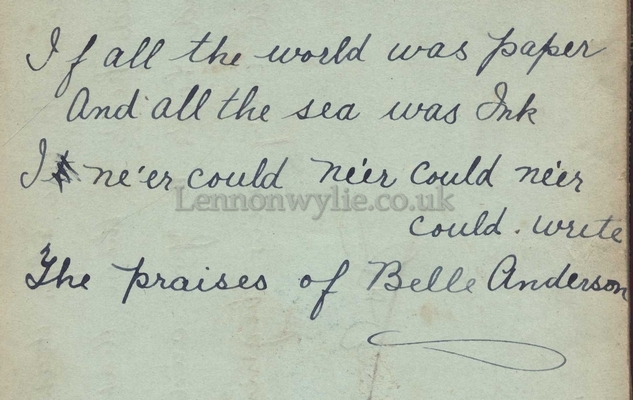 If all the world was paper
And all the sea was Ink
I ne'er could ne'er could ne'er
Lennonwylie.co.uk
could. write
The praises of Belle Anderson